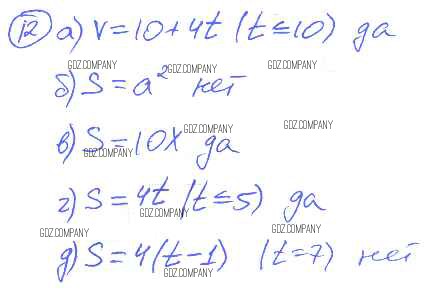 12 а) V=10+4t (t≤10) да
GDZ.COMPANY GDZ.COMPANY GDZ.COMPANY
б) S=a² нет
GDZ.COMPANY GDZ.COMPANY
в) S=10x да
GDZ.COMPANY
г) S=4t (t≤5) да
GDZ.COMPANY
GDZ.COMPANY GDZ.COMPANY
д) S=4(t-1) (t=7) нет
GDZ.COMPANY